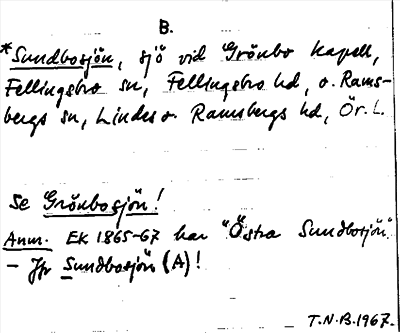 B.
*Sundbosjön, sjö vid Grönbo kapell,
Fellingsbro sn, Fellingsbro hd, o. Rams-
bergs sn, Lindes o. Ramsbergs hd, Ör. L.
Se Grönbosjön!
Anm. EK 1865-67 har "Östra Sundbosjön"
– Jfr Sundbosjön (A)!
T.N.B.1967.